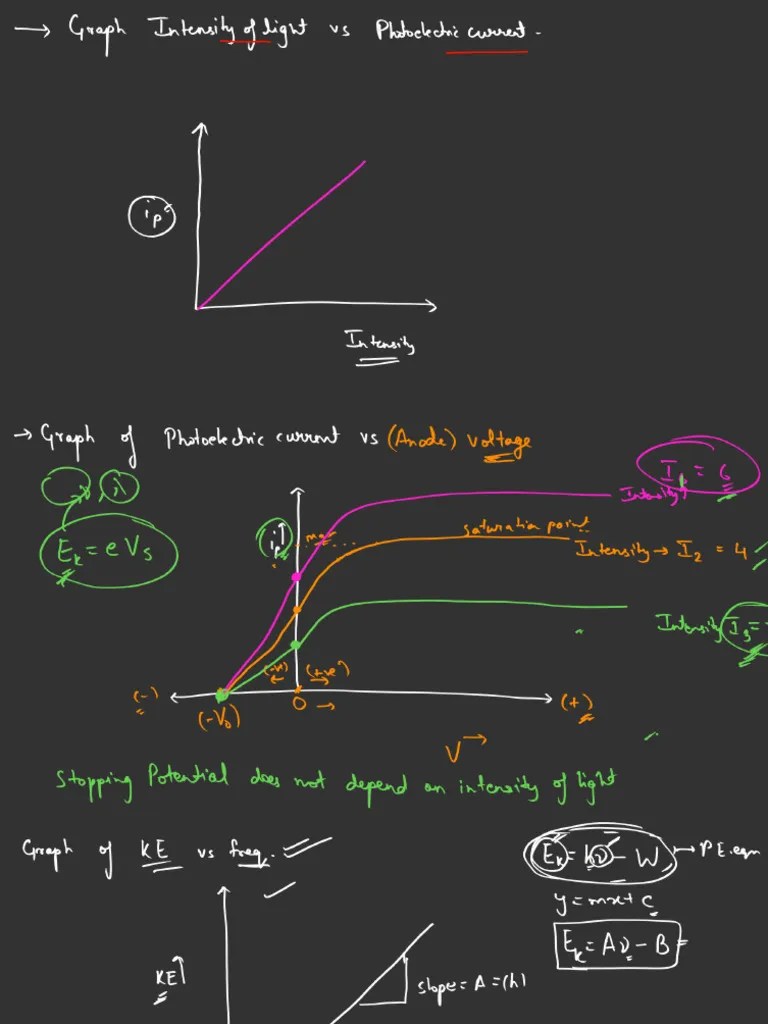 → Graph Intensity of light vs Photoelectric current.
ip
Intensity
→ Graph of Photoelectric current vs (Anode) voltage
λ
Ek = eVs
ip↑
max
saturation point
I1 = 6
Intensity
Intensity → I2 = 4
Intensity I3 =
(-)
(-ve) (+ve)
(-V0)
0 →
(+)
V →
Stopping Potential does not depend on intensity of light
Graph of KE vs freq.
Ek = hν - W → P.E. eqn
y = mx + c
Ek = Aν - B
KE↑
slope = A = (h)